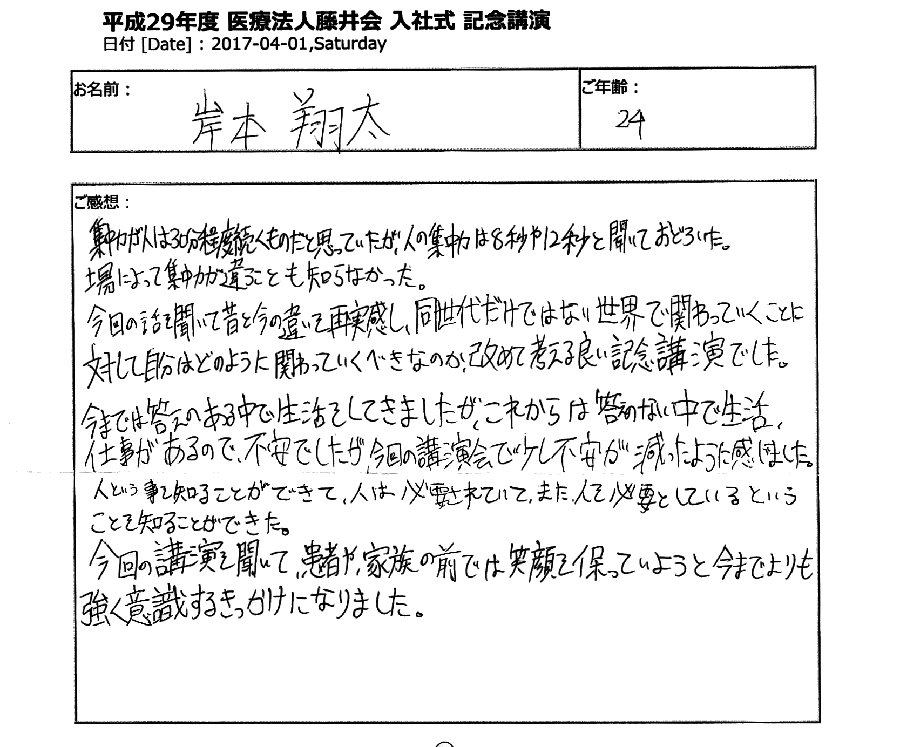 平成29年度 医療法人藤井会 入社式 記念講演
日付 [Date] : 2017-04-01,Saturday
お名前：
岸本 翔太
ご年齢：
24
ご感想：
集中力が人は30分程度続くものだと思っていたが、人の集中力は8秒や12秒と聞いておどろいた。
場によって集中力が違うことも知らなかった。
今回の話を聞いて昔と今の違いを再実感し、同世代だけではない世界で関わっていくことに
対して自分はどのように関わっていくべきなのか、改めて考える良い記念講演でした。
今までは答えのある中で生活をしてきましたが、これからは答えのない中で生活、
仕事があるので、不安でしたが、今回の講演会で少し不安が減ったように感じました。
人という事を知ることができて、人は必要されていて、また、人を必要としているという
ことを知ることができた。
今回の講演を聞いて、患者や、家族の前では笑顔を保っていようと今までよりも
強く意識するきっかけになりました。